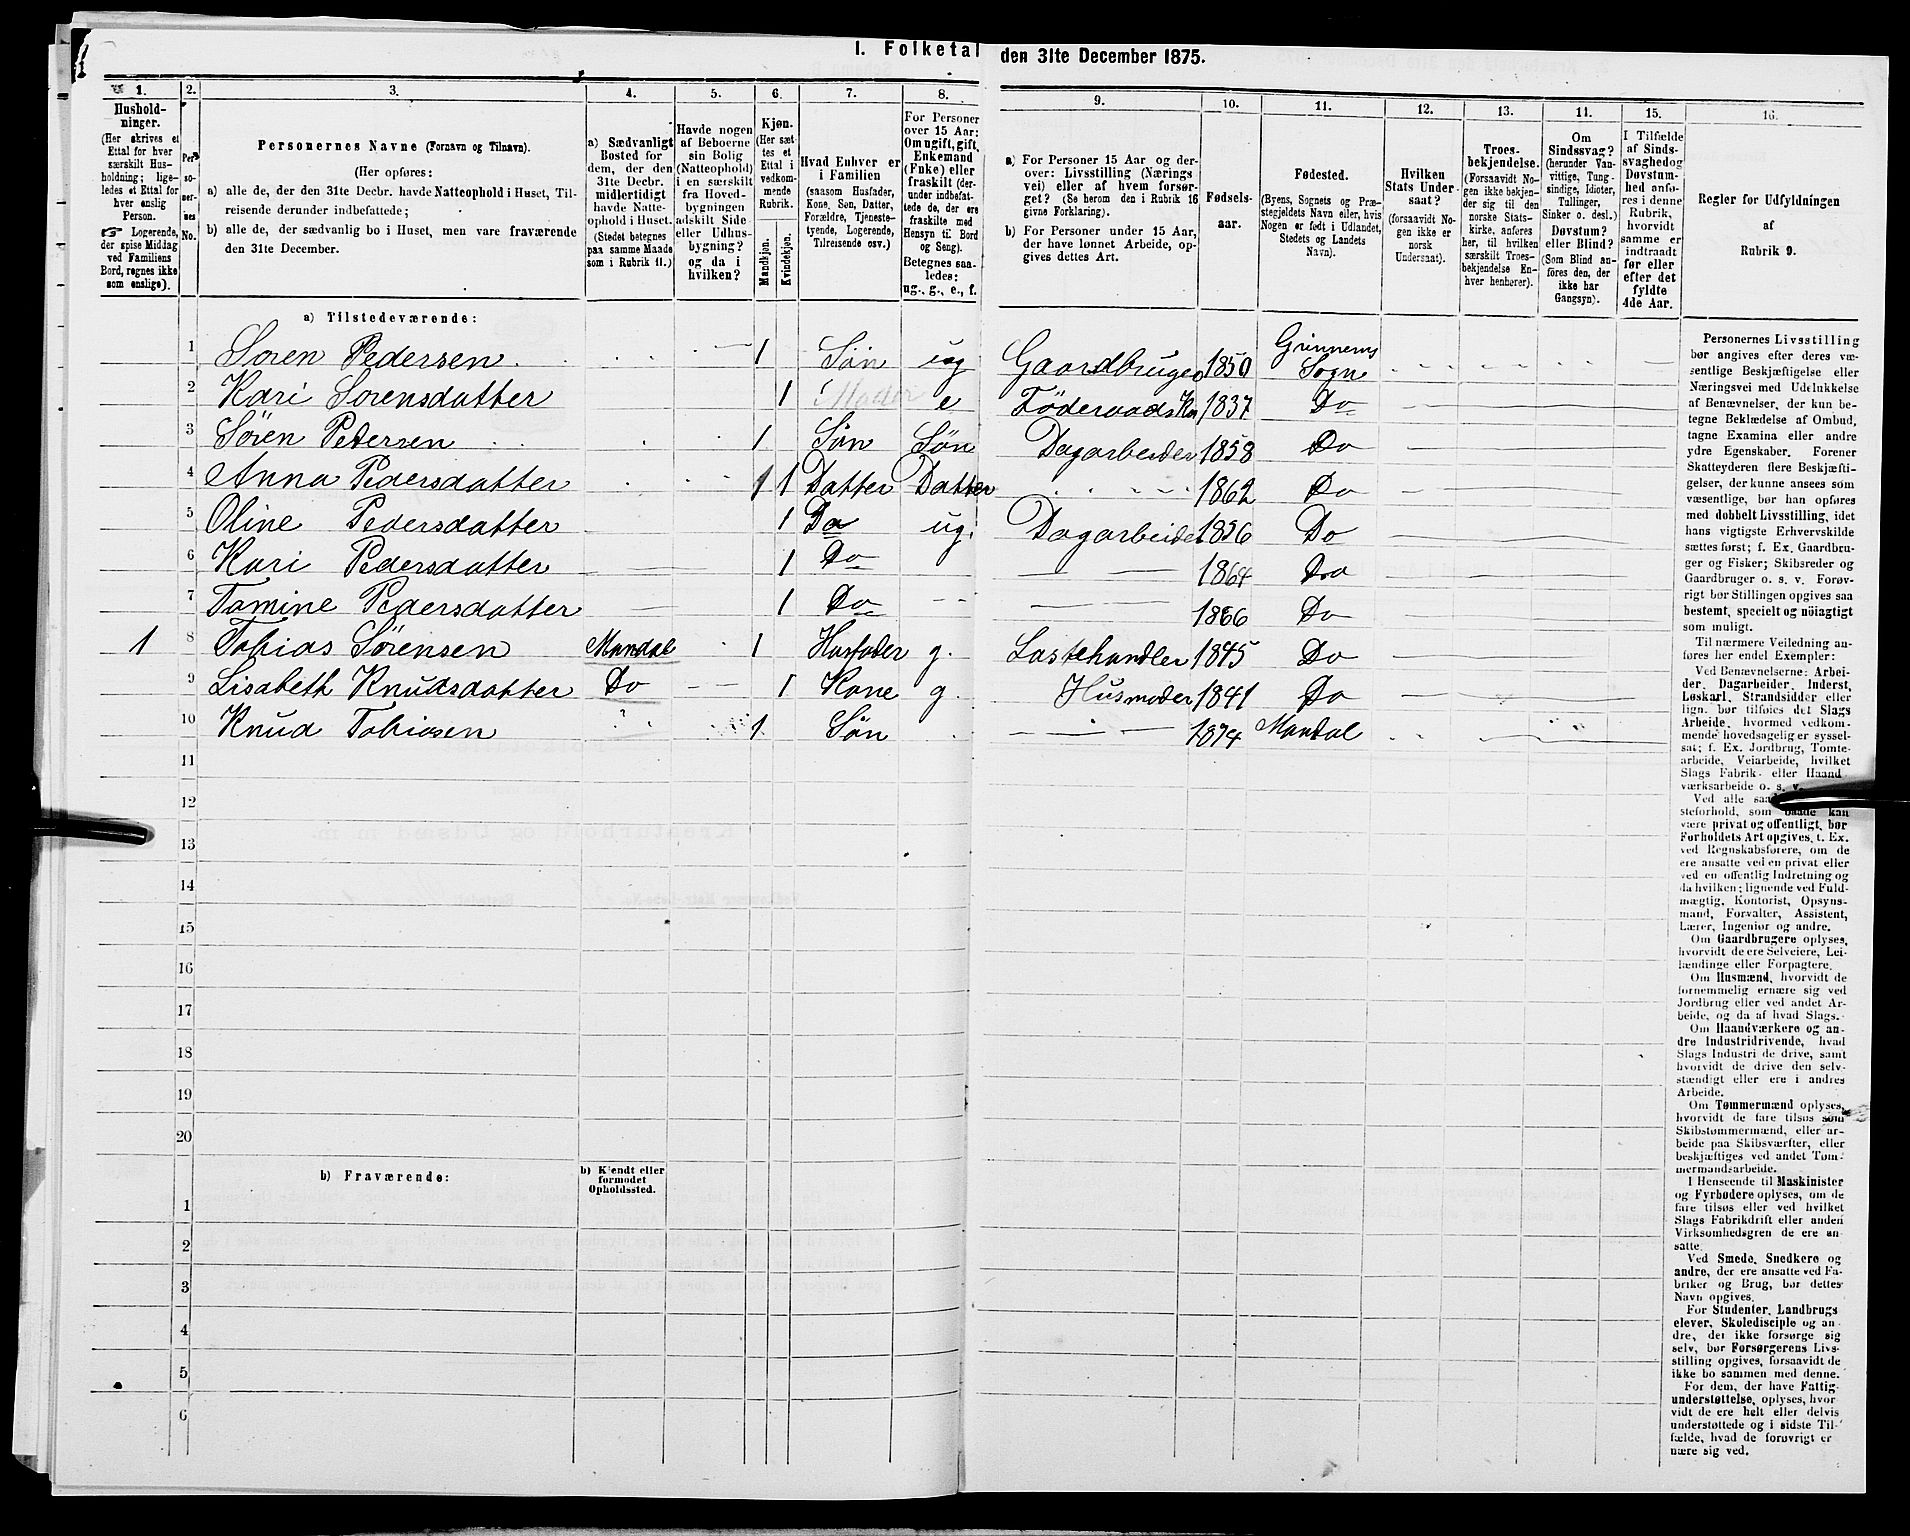 I. Folketal den 31te December 1875.
1. 2. 3. 4. 5. 6. 7. 8. 9. 10. 11. 12. 13. 11. 15. 16.
Hushold-
ninger.
(Her skrives et
Ettal for hver
særskilt Hus-
holdning; lige-
ledes et Ettal for
hver enslig
Person.
☞ Logerende,
der spise Middag
ved Familiens
Bord, regnes ikke
som enslige).
Per-
so-
ner-
nes
No.
Personernes Navne (Fornavn og Tilnavn).
(Her opføres:
a) alle de, der den 31te Decbr. havde Natteophold i Huset, Til-
reisende derunder indbefattede;
b) alle de, der sædvanlig bo i Huset, men vare fraværende
den 31te December.
a) Sædvanligt
Bosted for
dem, der den
31te Decbr.
midlertidigt
havde Natte-
ophold i Huset.
(Stedet betegnes
paa samme Maade
som i Rubrik 11.)
Havde nogen
af Beboerne
sin Bolig
(Natteophold)
i en særskilt
fra Hoved-
bygningen
adskilt Side
eller Udhus-
bygning?
og da i
hvilken?
Kjøn.
(Her sæt-
tes et
Ettal i
vedkom-
mende
Rubrik.
Mandkjøn.
Kvindekjøn.
Hvad Enhver er
i Familien
(saasom Husfader,
Kone, Søn, Datter,
Forældre, Tjeneste-
tyende, Logerende,
Tilreisende osv.)
For Personer
over 15 Aar:
Om ugift, gift,
Enkemand
(Enke) eller
fraskilt (der-
under indbefat-
tede de, der ere
fraskilte med
Hensyn til Bord
og Seng).
Betegnes saa-
ledes:
ug., g., e., f.
a) For Personer 15 Aar og der-
over: Livsstilling (Nærings
vei) eller af hvem forsør-
get? (Se herom den i Rubrik 16
givne Forklaring).
b) For Personer under 15 Aar,
der have lønnet Arbeide, op-
gives dettes Art.
Fødsels-
aar.
Fødested.
(Byens, Sognets og Præ-
stegjeldets Navn eller, hvis
Nogen er født i Udlandet,
Stedets og Landets
Navn).
Hvilken
Stats Under-
saat?
(forsaavidt No-
gen ikke er
norsk
Undersaat).
Troes-
bekjendelse.
(Forsaavidt No-
gen ikke bekjen-
der sig til den
norske Stats-
kirke, anføres
her, til hvilken
særskilt Troes-
bekjendelse En-
hver henhører).
Om
Sindssvag?
(herunder Van-
vittige, Tung-
sindige, Idioter,
Tullinger,
Sinker o. desl.)
Døvstum?
eller Blind?
(Som Blind an-
føres den, der
ikke har
Gangsyn).
I Tilfælde
af Sinds-
svaghed og
Døvstum-
hed anfø-
res i denne
Rubrik,
hvorvidt
samme er
indtraadt
før eller
efter det
fyldte
4de Aar.
Regler for Udfyldningen
af
Rubrik 9.
a) Tilstedeværende:
1 Søren Pedersen 1 Søn ug Gaardbruger 1850 Sogn
2 Kari Sørensdatter 1 Moder e Føderaads 1837 Do
3 Søren Pedersen 1 Søn Søn Dagarbeider 1858 Do
4 Anna Pedersdatter 1 1 Datter Datter 1862 Do
5 Oline Pedersdatter 1 Do ug. Dagarbeider 1856 Do
6 Kari Pedersdatter 1 Do 1864 Do
7 Tomine Pedersdatter 1 Do 1866 Do
1 8 Tobias Sørensen Mandal 1 Husfader g. Lastehandler 1845 Do
9 Lisabeth Knudsdatter Do 1 Kone g. Husmoder 1841 Do
10 Knud Tobiasen 1 Søn 1874 Mandal
11
12
13
14
15
16
17
18
19
20
b) Fraværende:
b) Kjendt eller
formodet
Opholdssted.
1
2
3
4
5
6
Personernes Livsstilling
bør angives efter deres væ-
sentlige Beskjæftigelse eller
Næringsvei med Udelukkelse
af Benævnelser, der kun be-
tegne Beklædelse af Ombud,
tagne Examina eller andre
ydre Egenskaber. Forener
Skatteyderen flere Beskjæfti-
gelser, der kunne ansees som
væsentlige, bør han opføres
med dobbelt Livsstilling, idet
hans vigtigste Erhvervskilde
sættes først; f. Ex. Gaardbru-
ger og Fisker; Skibsreder og
Gaardbruger o. s. v. Forøv-
rigt bør Stillingen opgives saa
bestemt, specielt og nöiagtigt
som muligt.
Til nærmere Veiledning an-
føres her endel Exempler:
Ved Benævnelserne: Arbei-
der, Dagarbeider, Inderst,
Løskarl, Strandsidder eller
lign. bør tilføies det Slags
Arbeide, hvormed vedkom-
mende hovedsagelig er syssel-
sat; f. Ex. Jordbrug, Tomte-
arbeide, Veiarbeide, hvilket
Slags Fabrik- eller Haand
værksarbeide o. s. v.
Ved alle
steforhold, som baade kan
være privat og offentligt, bør
Forholdets Art opgives, t. Ex.
ved Regnskabsførere, om de
ere ansatte ved en privat eller
ved en offentlig Indretning og
da hvilken; lignende ved Fuld-
mægtig, Kontorist, Opsyns-
mand, Forvalter, Assistent,
Lærer, Ingeniør og andre.
Om Gaardbrugere oplyses,
hvorvidt de ere Selveiere, Lei-
lændinge eller Forpagtere.
Om Husmænd, hvorvidt de
fornemmelig ernære sig ved
Jordbrug eller ved andet Ar-
beide, og da af hvad Slags.
Om Haandværkere og an-
dre Industridrivende, hvad
Slags Industri de drive, samt
hvorvidt de drive den selv-
stændigt eller ere i andres
Arbeide.
Om Tømmermænd oplyses,
hvorvidt de fare tilsøs som
Skibstømmermænd, eller ar-
beide paa Skibsværfter, eller
beskjæftiges ved andet Tøm-
mermandsarbeide.
I Henseende til Maskinister
og Fyrbødere oplyses, om de
fare tilsøs eller ved hvilket
Slags Fabrikdrift eller anden
Virksomhedsgren de ere an-
satte.
Ved Smede, Snedkere og
andre, der ere ansatte ved Fa-
briker og Brug, bør dettes
Navn opgives.
For Studenter, Landbrugs
elever, Skoledisciple og an-
dre, der ikke forsørge sig
selv, bør Forsørgerens Livs-
stilling opgives, forsaavidt de
ikke bo sammen med denne.
For dem, der have Fattig-
understøttelse, oplyses, hvor-
vidt de ere helt eller delvis
understøttede og i sidste Til-
fælde, hvad de forøvrigt er
nære sig ved.